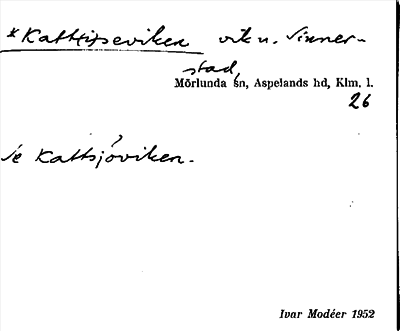 *Kattsjöeviken vik u. Vinner-
stad,
Mörlunda sn, Aspelands hd, Klm. l.
26
Se Kattsjöviken.
Ivar Modéer 1952